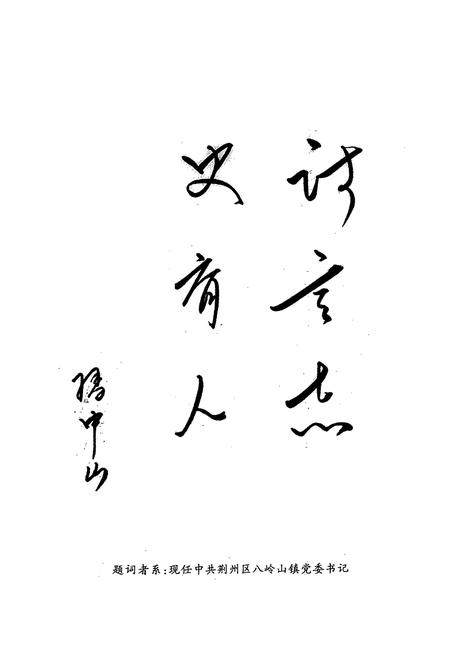 诗言志
史育人
中山
题词者系:现任中共荆州区八岭山镇党委书记